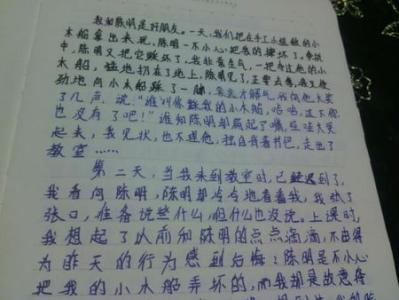 我和陈明是好朋友。一天,我们把在手工小组做的小
木船拿出来玩,陈明一不小心把我的摔坏了。争执
中,陈明又把它踩坏了,我非常生气,一把夺过他的小
木船,猛地扔在了地上,陈明见了,正要去拿,我又使
劲地向小木船踩了一脚,我大笑
了几声,说:"谁叫你踩我的小木船,哈哈,这下你
也没有了吧!"谁知陈明却蹲起了嘴,大哭
起来,我见状,也不理他,独自背着书包,走出了
教室……
第二天,当我来到教室时,已经迟到了,
我看向陈明,陈明却冷冷地看着我,我张了
张口,准备说些什么,但什么也没说。上课时,
我想起了以前和陈明的点点滴滴,不由得
为昨天的行为感到后悔:陈明是不小心
把我的小木船弄坏的,而我却是故意将